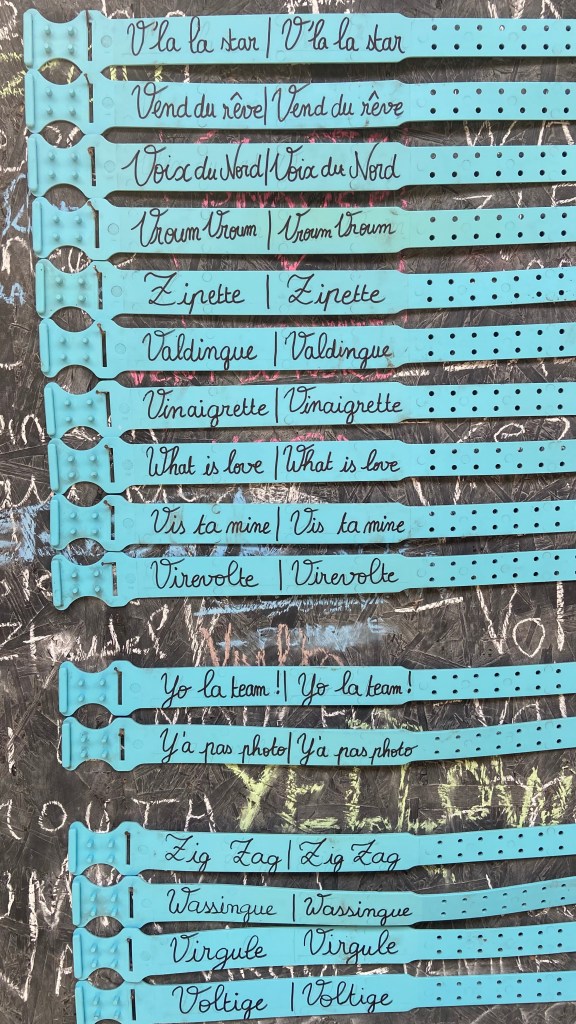 V'la la star | V'la la star
Vend du rêve | Vend du rêve
Voix du Nord | Voix du Nord
Vroum Vroum | Vroum Vroum
Zipette | Zipette
Valdingue | Valdingue
Vinaigrette | Vinaigrette
What is love | What is love
Vis ta mine | Vis ta mine
Virevolte | Virevolte
Yo la team ! | Yo la team !
Y'a pas photo | Y'a pas photo
YELLOW
Zig Zag | Zig Zag
Wassingue | Wassingue
Virgule Virgule
Voltige | Voltige